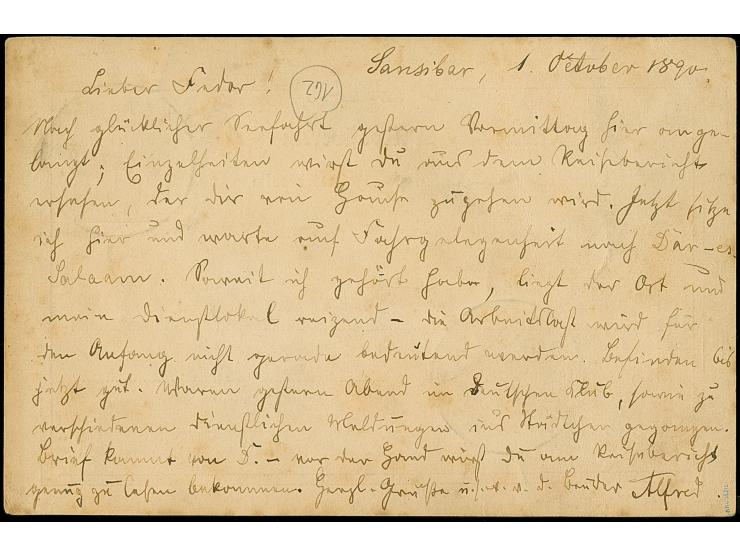 Sansibar, 1. October 1890.
Lieber Fedor! 162
Nach glücklicher Seefahrt gestern Vormittag hier ange-
langt; Einzelheiten wirst du aus dem Reisebericht
ersehen, der dir von Hause zugehen wird. Jetzt sitze
ich hier und warte auf Fahrgelegenheit nach Dar-es-
Salaam. Soweit ich gehört habe, liegt der Ort und
mein Dienstlokal reizend – die Arbeitslast wird für
den Anfang nicht gerade bedeutend werden. Befinden bis
jetzt gut. Waren gestern Abend im Deutschen Klub, sowie zu
verschiedenen dienstlichen Meldungen ins Städtchen gegangen.
Brief kommt von D. – vor der Hand wirst du am Reisebericht
genug zu lesen bekommen. Herzl. Grüße v. d. Bruder Alfred.